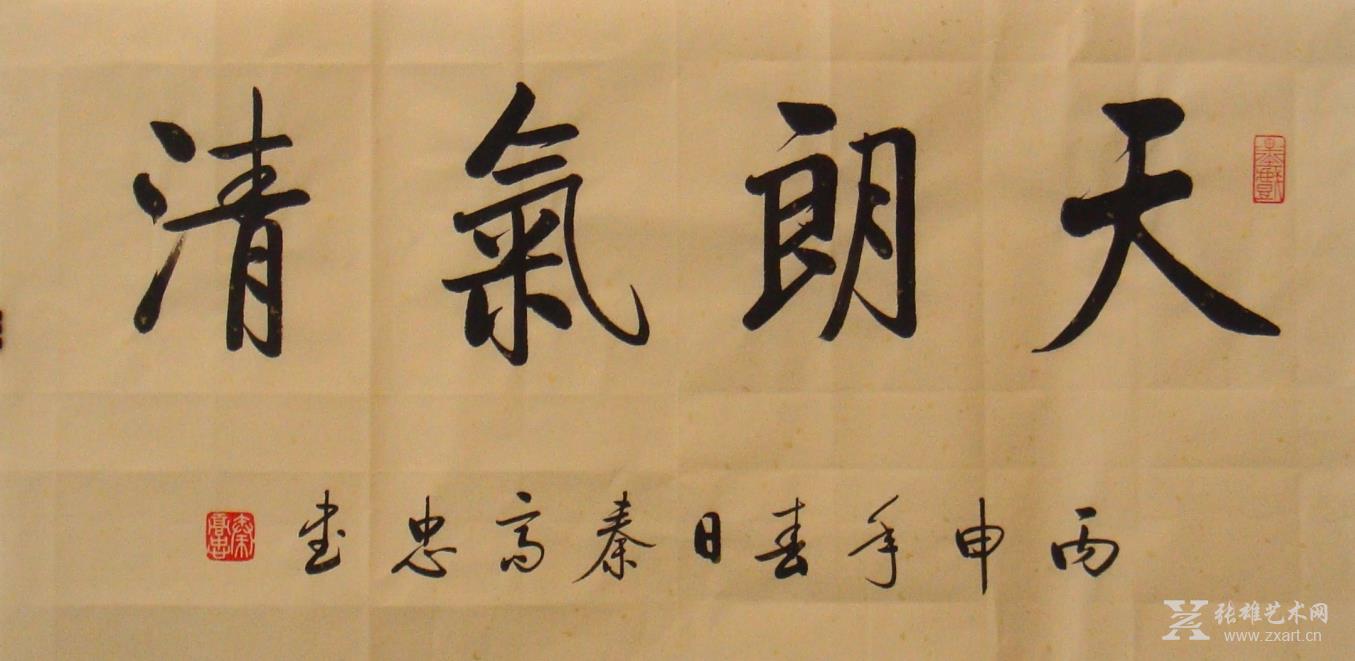 天朗氣清
丙申年春日秦高忠书
秦高忠
张雄艺术网
www.zxart.cn